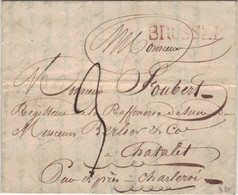 BRUSSEL
Monsieur
Monsieur Joubert
Régisseur de la Raffinerie de Sucre de
Messieurs Berlier & Co
à Chatelet
près Charleroi